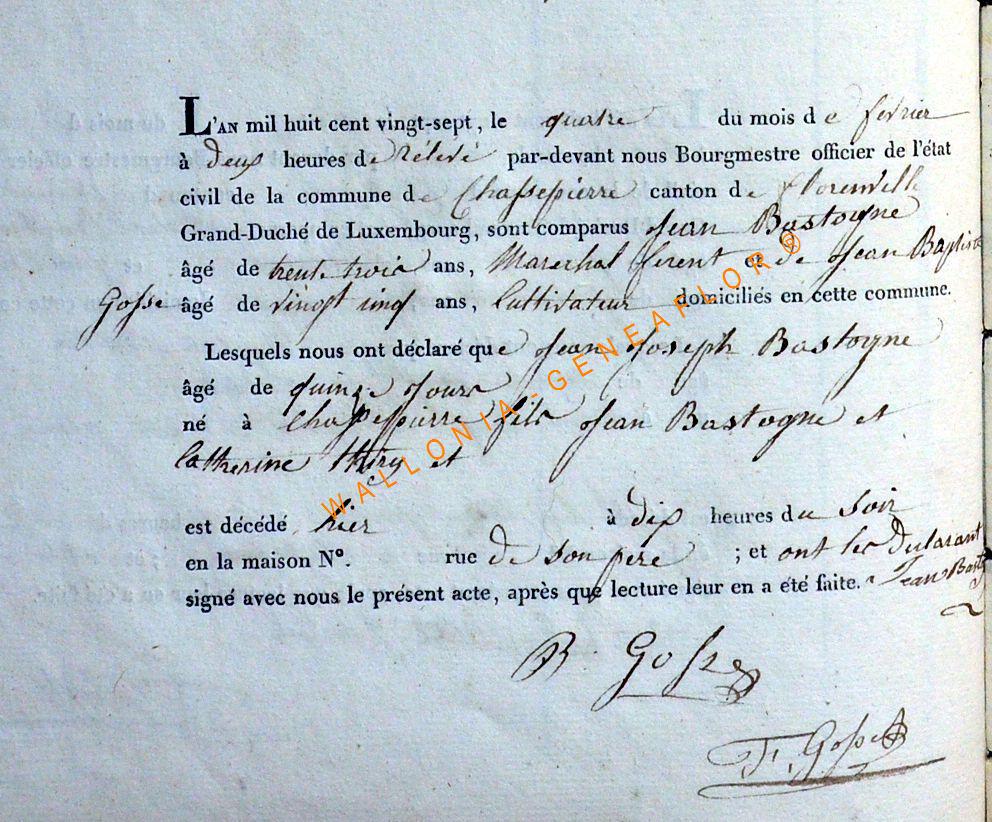 L'AN mil huit cent vingt-sept, le quatre du mois de fevrier
à deux heures de rélévé par-devant nous Bourgmestre officier de l'état
civil de la commune de Chassepierre canton de Florenville
Grand-Duché de Luxembourg, sont comparus Jean Bastogne
âgé de trente trois ans, Marechal ferent et de Jean Baptiste
Gosse âgé de vingt cinq ans, Cultivateur domiciliés en cette commune.
Lesquels nous ont déclaré que Jean Joseph Bastogne
âgé de quinze Jours
né à Chassepierre fils Jean Bastogne et
Catherine thiry et
est décédé hier à dix heures du Soir
en la maison N°. rue de son pere ; et ont les Dularant
signé avec nous le présent acte, après que lecture leur en a été faite. Jean Bast
B. Gosse
F. Gosse
WALLONIA-GENEAFLOR®